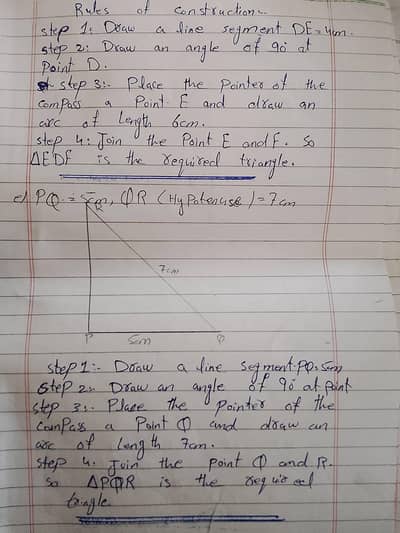 Rules of construction.
step 1: Draw a line segment DE = 4cm.
step 2: Draw an angle of 90° at
Point D.
step 3:- Place the Pointer of the
compass a Point E and draw an
arc of length 6cm.
step 4: Join the Point E and F. So
ΔEDF is the required triangle.
c) PQ = 5cm, QR (Hypotencise) = 7cm
7cm
P 5cm Q
step 1:- Draw a line segment PQ = 5cm
step 2:- Draw an angle of 90° at Point
step 3:- Place the Pointer of the
comPass a Point Q and draw an
arc of length 7cm.
step 4. Join the point Q and R.
so ΔPQR is the required
triangle.